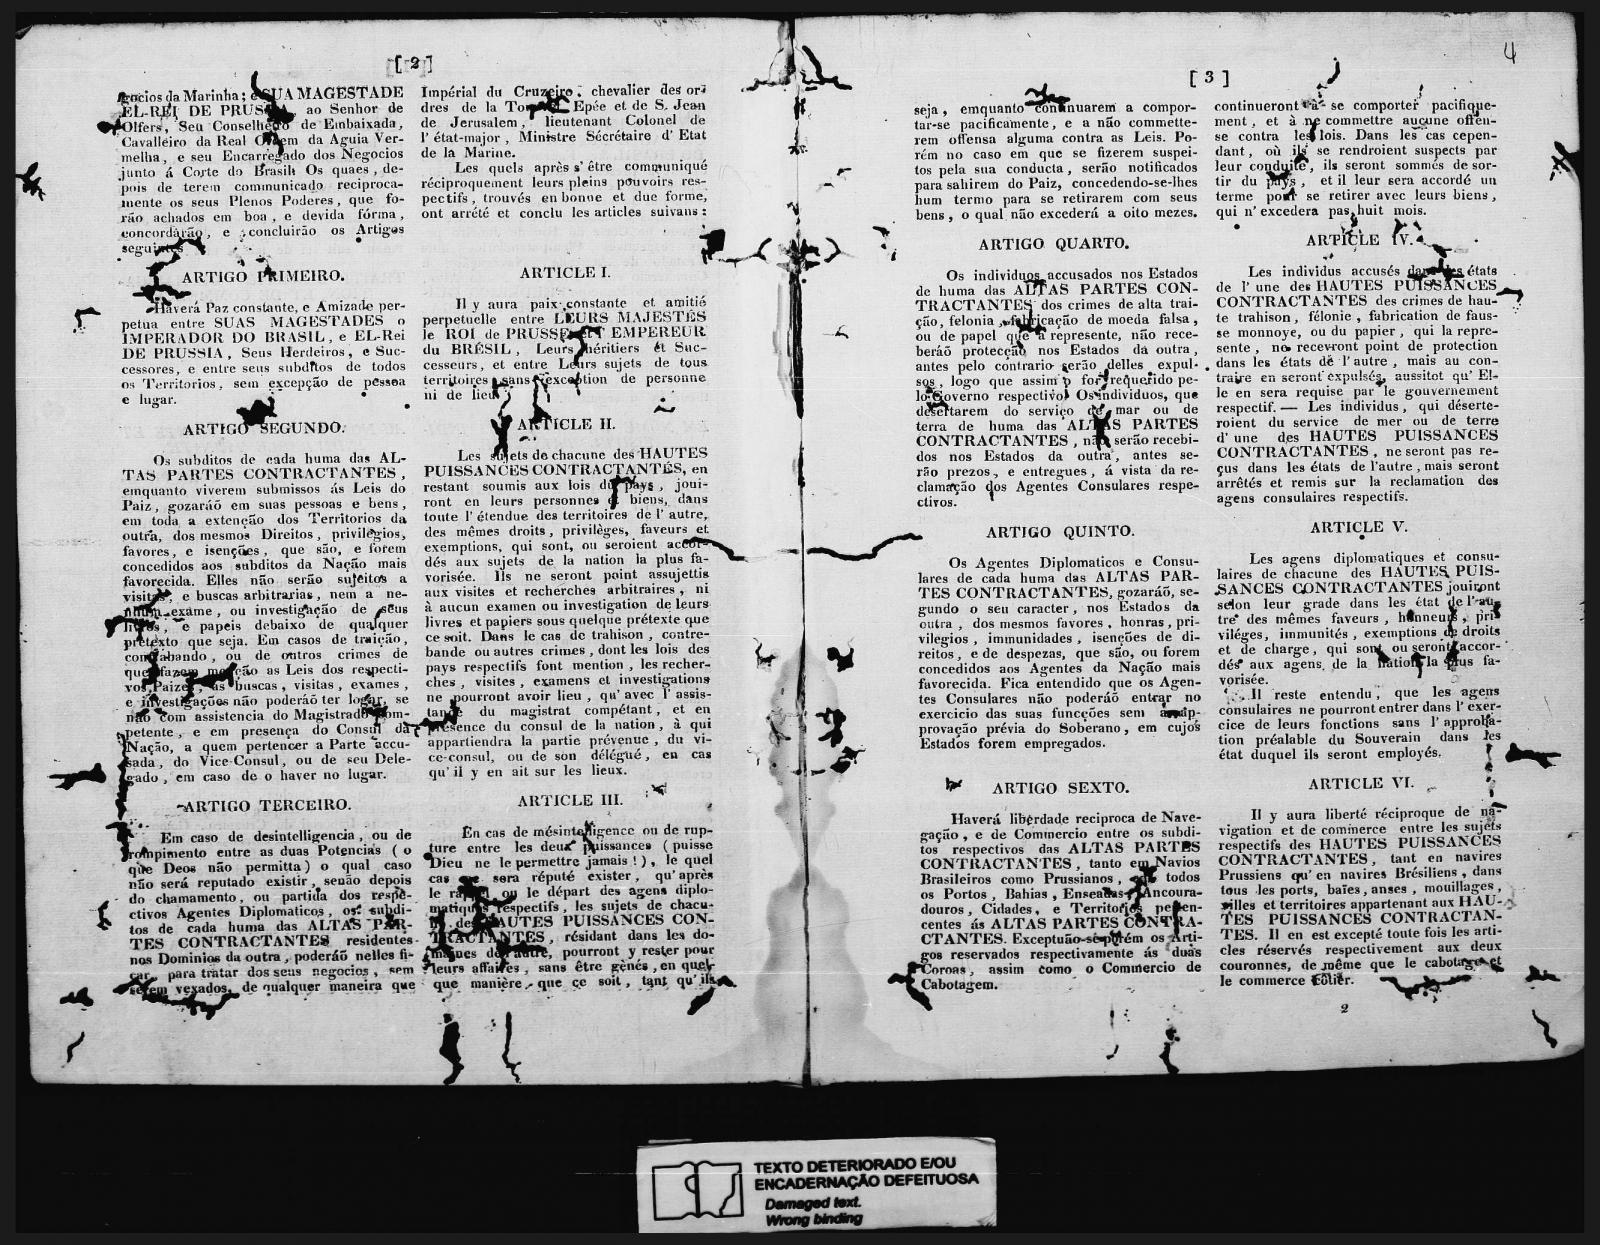 [ 2 ]
gocios da Marinha; e SUA MAGESTADE
EL-REI DE PRUSSIA, ao Senhor de
Olfers, Seu Conselheiro de Embaixada,
Cavalleiro da Real Ordem da Aguia Ver-
melha, e seu Encarregado dos Negocios
junto á Corte do Brasil: Os quaes, de-
pois de terem communicado reciproca-
mente os seus Plenos Poderes, que fo-
rão achados em boa, e devida fórma,
concordárão, e concluirão os Artigos
seguintes
ARTIGO PRIMEIRO.
Haverá Paz constante, e Amizade per-
petua entre SUAS MAGESTADES o
IMPERADOR DO BRASIL, e EL-Rei
DE PRUSSIA, Seus Herdeiros, e Suc-
cessores, e entre seus subditos de todos
os Territorios, sem excepção de pessoa
e lugar.
ARTIGO SEGUNDO.
Os subditos de cada huma das AL-
TAS PARTES CONTRACTANTES,
emquanto viverem submissos ás Leis do
Paiz, gozaráõ em suas pessoas e bens,
em toda a extenção dos Territorios da
outra, dos mesmos Direitos, privilegios,
favores, e isenções, que são, e forem
concedidos aos subditos da Nação mais
favorecida. Elles não serão sujeitos a
visitas, e buscas arbitrarias, nem a ne-
nhum exame, ou investigação de seus
livros, e papeis debaixo de qualquer
pretexto que seja. Em casos de traição,
contrabando, ou de outros crimes de
que fazem menção as Leis dos respecti-
vos Paizes, as buscas, visitas, exames,
e investigações não poderáõ ter logar, se
não com assistencia do Magistrado com-
petente, e em presença do Consul da
Nação, a quem pertencer a Parte accu-
sada, do Vice-Consul, ou de seu Dele-
gado, em caso de o haver no lugar.
ARTIGO TERCEIRO.
Em caso de desintelligencia, ou de
rompimento entre as duas Potencias ( o
que Deos não permitta ) o qual caso
não será reputado existir, senão depois
do chamamento, ou partida dos respe-
ctivos Agentes Diplomaticos, os subdi-
tos de cada huma das ALTAS PAR-
TES CONTRACTANTES residentes
nos Dominios da outra, poderáõ nelles fi-
car, para tratar dos seus negocios, sem
serem vexados, de qualquer maneira que
Impérial du Cruzeiro, chevalier des or-
dres de la Tour et Epée et de S. Jean
de Jerusalem, lieutenant Colonel de
l' état-major, Ministre Sécrétaire d' Etat
de la Marine.
Les quels après s'être communiqué
réciproquement leurs pleins pouvoirs res-
pectifs, trouvés en bonne et due forme,
ont arrété et conclu les articles suivans:
ARTICLE I.
Il y aura paix constante et amitié
perpetuelle entre LEURS MAJESTÉS
le ROI de PRUSSE et l' EMPEREUR
du BRÉSIL, Leurs héritiers et Suc-
cesseurs, et entre Leurs sujets de tous
territoires sans exception de personne
ni de lieu
ARTICLE II.
Les sujets de chacune des HAUTES
PUISSANCES CONTRACTANTES, en
restant soumis aux lois du pays, joui-
ront en leurs personnes et biens, dans
toute l' étendue des territoires de l' autre,
des mêmes droits, privilèges, faveurs et
exemptions, qui sont, ou seroient accor-
dés aux sujets de la nation la plus fa-
vorisée. Ils ne seront point assujettis
aux visites et recherches arbitraires, ni
à aucun examen ou investigation de leurs
livres et papiers sous quelque prétexte que
ce soit. Dans le cas de trahison, contre-
bande ou autres crimes, dont les lois des
pays respectifs font mention, les recher-
ches, visites, examens et investigations
ne pourront avoir lieu, qu' avec l' assis-
tance du magistrat compétant, et en
présence du consul de la nation, à qui
appartiendra la partie prévenue, du vi-
ce-consul, ou de son délégué, en cas
qu' il y en ait sur les lieux.
ARTICLE III.
En cas de mésintelligence ou de rup-
ture entre les deux puissances ( puisse
Dieu ne le permettre jamais !), le quel
cas ne sera réputé exister, qu' après
le rappel ou le départ des agens diplo-
matiques respectifs, les sujets de chacu-
ne des HAUTES PUISSANCES CON-
TRACTANTES, résidant dans les do-
maines de l'autre, pourront y rester pour
leurs affaires, sans être gènés, en quel-
que manière que ce soit, tant qu' ils
[ 3 ]
4
seja, emquanto continuarem a compor-
tar-se pacificamente, e a não commette-
rem offensa alguma contra as Leis. Po-
rém no caso em que se fizerem suspei-
tos pela sua conducta, serão notificados
para sahirem do Paiz, concedendo-se-lhes
hum termo para se retirarem com seus
bens, o qual não excederá a oito mezes.
ARTIGO QUARTO.
Os individuos accusados nos Estados
de huma das ALTAS PARTES CON-
TRACTANTES dos crimes de alta trai-
ção, felonia, fabricação de moeda falsa,
ou de papel que a represente, não rece-
beráõ protecção nos Estados da outra,
antes pelo contrario serão delles expul-
sos, logo que assim o for requerido pe-
lo Governo respectivo. Os individuos, que
desertarem do serviço de mar ou de
terra de huma das ALTAS PARTES
CONTRACTANTES, não serão recebi-
dos nos Estados da outra, antes se-
rão prezos, e entregues, á vista da re-
clamação dos Agentes Consulares respe-
ctivos.
ARTIGO QUINTO.
Os Agentes Diplomaticos e Consu-
lares de cada huma das ALTAS PAR-
TES CONTRACTANTES, gozaráõ, se-
gundo o seu caracter, nos Estados da
outra, dos mesmos favores, honras, pri-
vilegios, immunidades, isenções de di-
reitos, e de despezas, que são, ou forem
concedidos aos Agentes da Nação mais
favorecida. Fica entendido que os Agen-
tes Consulares não poderáõ entrar no
exercicio das suas funcções sem a
provação prévia do Soberano, em cujos
Estados forem empregados.
ARTIGO SEXTO.
Haverá liberdade reciproca de Nave-
gação, e de Commercio entre os subdi-
tos respectivos das ALTAS PARTES
CONTRACTANTES, tanto em Navios
Brasileiros como Prussianos, em todos
os Portos, Bahias, Enseadas, Ancoura-
douros, Cidades, e Territorios perten-
centes ás ALTAS PARTES CONTRA-
CTANTES. Exceptuão-se porém os Arti-
gos reservados respectivamente ás duas
Coroas, assim como o Commercio de
Cabotagem.
continueront à se comporter pacifique-
ment, et à ne commettre aucune offen-
se contra les lois. Dans les cas cepen-
dant, où ils se rendroient suspects par
leur conduite, ils seront sommés de sor-
tir du pays, et il leur sera accordé un
terme pour se retirer avec leurs biens,
qui n' excedera pas huit mois.
ARTICLE IV.
Les individus accusés dans les états
de l' une des HAUTES PUISSANCES
CONTRACTANTES des crimes de hau-
te trahison, félonie, fabrication de faus-
se monnoye, ou du papier, qui la repre-
sente, no recevront point de protection
dans les états de l' autre, mais au con-
traire en seront expulsés, aussitot qu' El-
le en sera requise par le gouvernement
respectif. — Les individus, qui déserte-
roient du service de mer ou de terre
d' une des HAUTES PUISSANCES
CONTRACTANTES, ne seront pas re-
çus dans les états de l'autre, mais seront
arrêtés et remis sur la reclamation des
agens consulaires respectifs.
ARTICLE V.
Les agens diplomatiques et consu-
laires de chacune des HAUTES PUIS-
SANCES CONTRACTANTES jouiront
selon leur grade dans les état de l'au-
tre des mêmes faveurs, honneurs, pri-
viléges, immunités, exemptions de droits
et de charge, qui sont ou seront accor-
dés aux agens de la nation la plus fa-
vorisée.
Il reste entendu, que les agens
consulaires ne pourront entrer dans l' exer-
cice de leurs fonctions sans l' approba-
tion préalable du Souverain dans les
état duquel ils seront employés.
ARTICLE VI.
Il y aura liberté réciproque de na-
vigation et de commerce entre les sujets
respectifs des HAUTES PUISSANCES
CONTRACTANTES, tant en navires
Prussiens qu' en navires Brésiliens, dans
tous les ports, baïes, anses, mouillages,
villes et territoires appartenant aux HAU-
TES PUISSANCES CONTRACTAN-
TES. Il en est excepté toute fois les arti-
cles réservés respectivement aux deux
couronnes, de même que le cabotage et
le commerce côtier.
2
TEXTO DETERIORADO E/OU
ENCADERNAÇÃO DEFEITUOSA
Damaged text.
Wrong binding